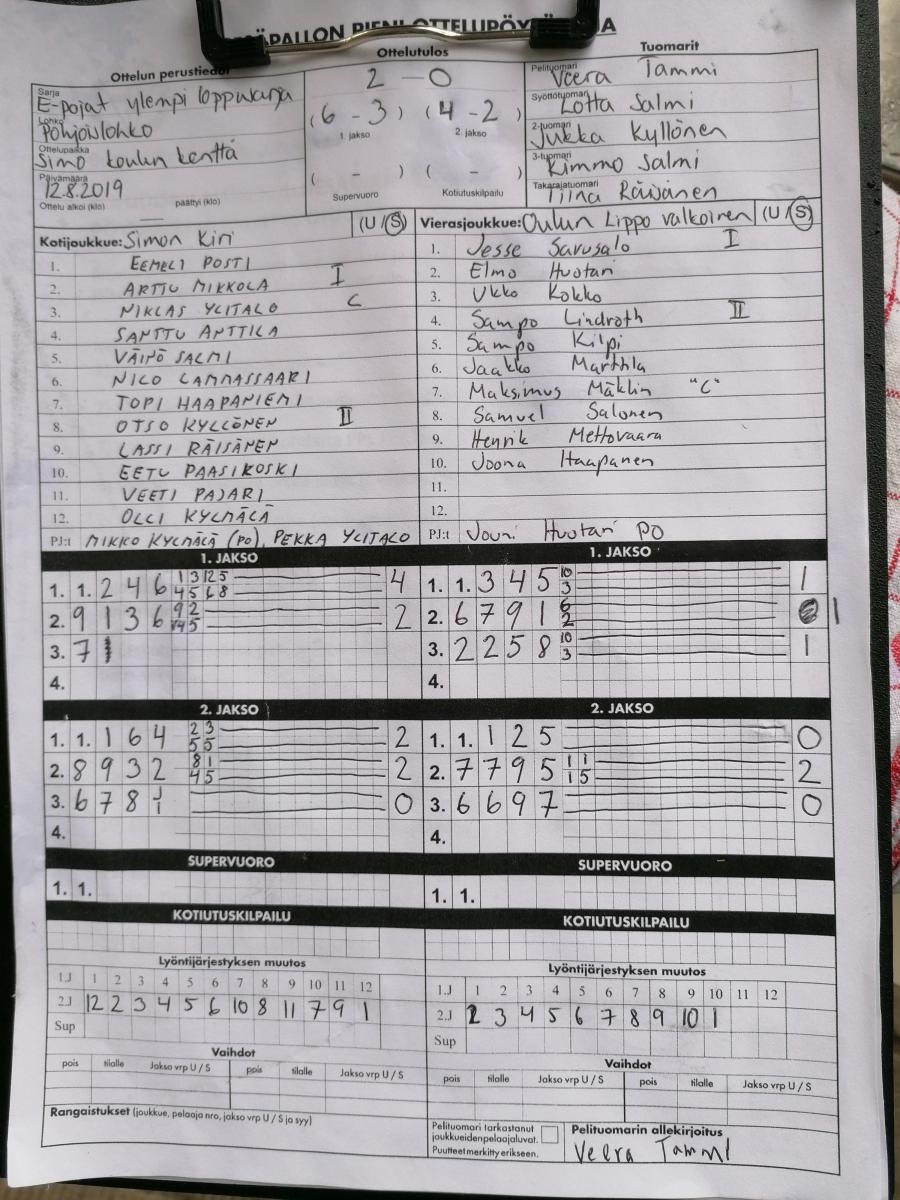 PALLON PIENI OTTELUPÖY
Ottelun perustiedot
Sarja
E-pojat ylempi loppusarja
Lohko
Pohjoislohko
Ottelupaikka
Simo koulun kenttä
Päivämäärä
12.8.2019
Ottelu alkoi (klo) — päättyi (klo)
Ottelutulos
2 - 0
(6 - 3) (4 - 2)
1. jakso 2. jakso
( - ) ( - )
Supervuoro Kotiutuskilpailu
Tuomarit
Pelituomari
Veera Tammi
Syöttötuomari
Lotta Salmi
2-tuomari
Jukka Kyllönen
3-tuomari
Kimmo Salmi
Takarajatuomari
Tiina Räisänen
Kotijoukkue: Simon Kiri (U / S)
1. EEMELI POSTI
2. ARTTU MIKKOLA I
3. NIKLAS YLITALO C
4. SANTTU ANTTILA
5. VÄINÖ SALMI
6. NICO LAMMASSAARI
7. TOPI HAAPANIEMI
8. OTSO KYLLÖNEN II
9. LASSI RÄISÄNEN
10. EETU PAASIKOSKI
11. VEETI PAJARI
12. OLLI KYLMÄLÄ
PJ:t MIKKO KYLMÄLÄ (PO), PEKKA YLITALO
Vierasjoukkue: Oulun Lippo valkoinen (U / S)
1. Jesse Savusalo I
2. Elmo Huotari
3. Ukko Kokko
4. Sampo Lindroth II
5. Sampo Kilpi
6. Jaakko Marttila
7. Maksimus Mäklin "C"
8. Samuel Salonen
9. Henrik Mettovaara
10. Joona Haapanen
11.
12.
PJ:t Jouni Huotari PO
1. JAKSO
1. 1. 2 4 6 1 3 12 5 4
4 5 6 8
2. 9 1 3 6 9 2 2
14 5
3. 7
4.
1. JAKSO
1. 1. 3 4 5 10 1
3
2. 6 7 9 1 6 1
2
3. 2 2 5 8 10 1
3
4.
2. JAKSO
1. 1. 1 6 4 2 3 2
5 5
2. 8 9 3 2 8 1 2
4 5
3. 6 7 8 1 0
4.
2. JAKSO
1. 1. 1 2 5 0
2. 7 7 9 5 1 1 2
1 5
3. 6 6 9 7 0
4.
SUPERVUORO
1. 1.
SUPERVUORO
1. 1.
KOTIUTUSKILPAILU
Lyöntijärjestyksen muutos
1.J 1 2 3 4 5 6 7 8 9 10 11 12
2.J 12 2 3 4 5 6 10 8 11 7 9 1
Sup
Vaihdot
pois tilalle Jakso vrp U / S pois tilalle Jakso vrp U / S
Rangaistukset (joukkue, pelaaja nro, jakso vrp U / S ja syy)
KOTIUTUSKILPAILU
Lyöntijärjestyksen muutos
1.J 1 2 3 4 5 6 7 8 9 10 11 12
2.J 2 3 4 5 6 7 8 9 10 1
Sup
Vaihdot
pois tilalle Jakso vrp U / S pois tilalle Jakso vrp U / S
Pelituomari tarkastanut
joukkueiden pelaajaluvat.
Puutteet merkitty erikseen.
Pelituomarin allekirjoitus
Veera Tammi